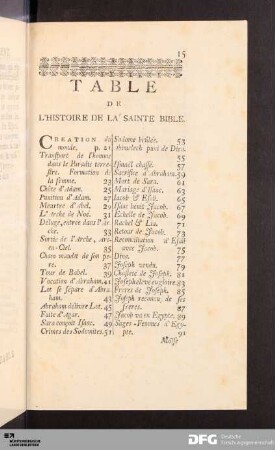 15
TABLE
DE
L'HISTOIRE DE LA SAINTE BIBLE.
CREATION du
monde. p. 21
Transport de l'homme
dans le Paradis terre-
stre. Formation de
la femme. 23
Chûte d'Adam. 25
Punition d'Adam. 27
Meurtre d'Abel. 29
L'Arche de Noé. 31
Deluge, entrée dans l'ar-
che. 33
Sortie de l'Arche, Arc-
en-Ciel. 35
Cham maudit de son pe-
re. 37
Tour de Babel. 39
Vocation d'Abraham. 41
Lot se sépare d'Abra-
ham. 43
Abraham délivre Lot. 45
Fuite d'Agar. 47
Sara conçoit Isaac. 49
Crimes des Sodomites. 51
Sodome brûlée. 53
Abimelech puni de Dieu.
55
Ismaël chassé. 57
Sacrifice d'Abraham. 59
Mort de Sara. 61
Mariage d'Isaac. 63
Jacob & Esaü. 65
Isaac benit Jacob. 67
Echelle de Jacob. 69
Rachel & Lia. 71
Retour de Jacob. 73
Reconciliation d'Esaü
avec Jacob. 75
Dina. 77
Joseph vendu. 79
Chasteté de Joseph. 81
Joseph élevé en gloire. 83
Freres de Joseph. 85
Joseph reconnu de ses
freres. 87
Jacob va en Egypte. 89
Sages-Femmes d'Egy-
pte. 91
Moïse
DFG Deutsche
Forschungsgemeinschaft